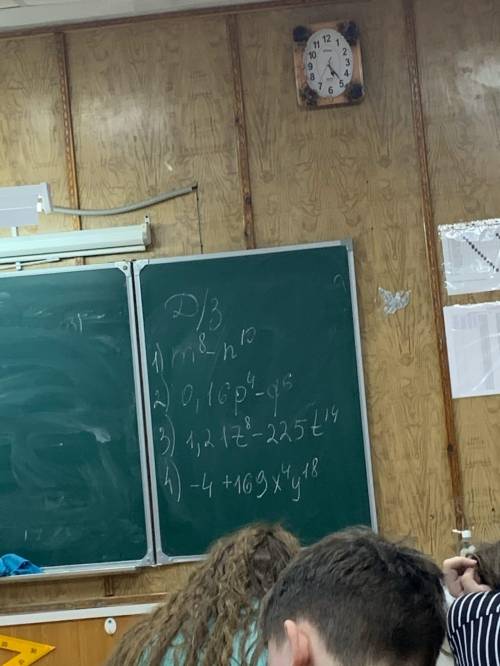 Д/З
1) m⁸-n¹⁰
2) 0,16p⁴-q⁶
3) 1,21z⁸-225t¹⁴
4) -4+169x⁴y¹⁸
12
1
2
3
4
5
6
7
8
9
10
11